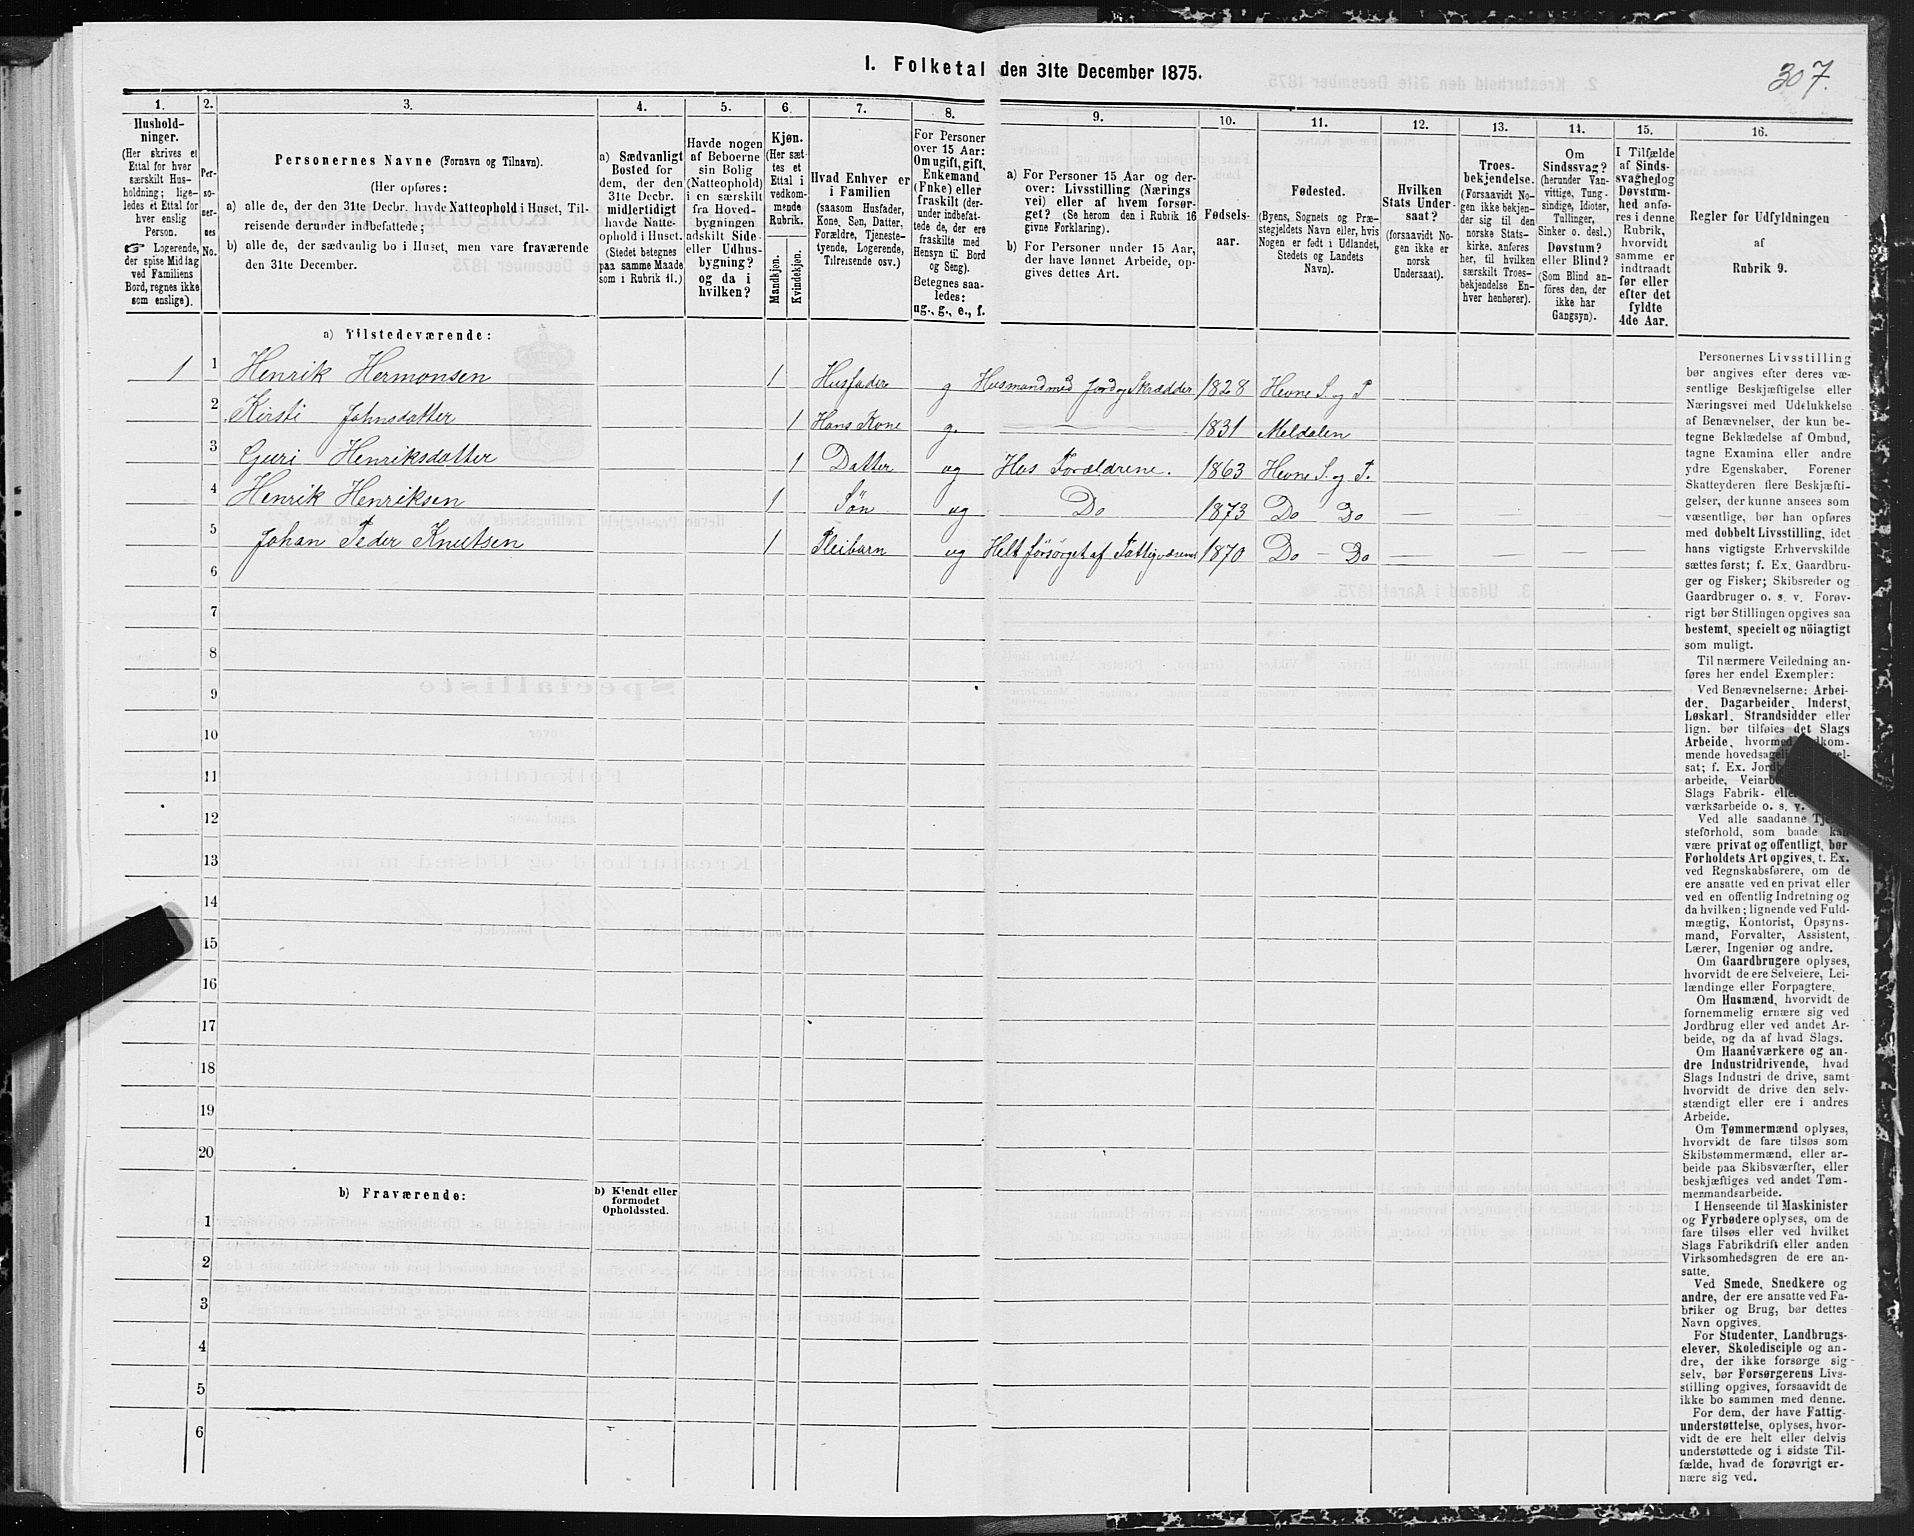 I. Folketal den 31te December 1875.
307.
1.
Hushold-
ninger.
(Her skrives et
Ettal for hver
særskilt Hus-
holdning; lige-
ledes et Ettal for
hver enslig
Person.
☞ Logerende,
der spise Middag
ved Familiens
Bord, regnes ikke
som enslige).
2.
Per-
so-
ner-
nes
No.
3.
Personernes Navne (Fornavn og Tilnavn).
(Her opføres:
a) alle de, der den 31te Decbr. havde Natteophold i Huset, Til-
reisende derunder indbefattede;
b) alle de, der sædvanlig bo i Huset, men vare fraværende
den 31te December.
4.
a) Sædvanligt
Bosted for
dem, der den
31te Decbr.
midlertidigt
havde Natte-
ophold i Huset.
(Stedet betegnes
paa samme Maade
som i Rubrik 11.)
5.
Havde nogen
af Beboerne
sin Bolig
(Natteophold)
i en særskilt
fra Hoved-
bygningen
adskilt Side-
eller Udhus-
bygning?
og da i
hvilken?
6.
Kjøn.
(Her sæt-
tes et
Ettal i
vedkom-
mende
Rubrik.
Mandkjøn.
Kvindekjøn.
7.
Hvad Enhver er
i Familien
(saasom Husfader,
Kone, Søn, Datter,
Forældre, Tjeneste-
tyende, Logerende,
Tilreisende osv.)
8.
For Personer
over 15 Aar:
Om ugift, gift,
Enkemand
(Enke) eller
fraskilt (der-
under indbefat-
tede de, der ere
fraskilte med
Hensyn til Bord
og Seng).
Betegnes saa-
ledes:
ug., g., e., f.
9.
a) For Personer 15 Aar og der-
over: Livsstilling (Nærings
vei) eller af hvem forsør-
get? (Se herom den i Rubrik 16
givne Forklaring).
b) For Personer under 15 Aar,
der have lønnet Arbeide, op-
gives dettes Art.
10.
Fødsels-
aar.
11.
Fødested.
(Byens, Sognets og Præ-
stegjeldets Navn eller, hvis
Nogen er født i Udlandet,
Stedets og Landets
Navn).
12.
Hvilken
Stats Under-
saat?
(forsaavidt No-
gen ikke er
norsk
Undersaat).
13.
Troes-
bekjendelse.
(Forsaavidt No-
gen ikke bekjen-
der sig til den
norske Stats-
kirke, anføres
her, til hvilken
særskilt Troes-
bekjendelse En-
hver henhører).
14.
Om
Sindssvag?
(herunder Van-
vittige, Tung-
sindige, Idioter,
Tullinger,
Sinker o. desl.)
Døvstum?
eller Blind?
(Som Blind an-
føres den, der
ikke har
Gangsyn).
15.
I Tilfælde
af Sinds-
svaghed og
Døvstum-
hed anfø-
res i denne
Rubrik,
hvorvidt
samme er
indtraadt
før eller
efter det
fyldte
4de Aar.
16.
Regler for Udfyldningen
af
Rubrik 9.
a) Tilstedeværende:
1 1 Henrik Hermonsen 1 Husfader g Husmand med Jord og Skrædder 1828 Hevne S. og P
2 Kirsti Johnsdatter 1 Hans Kone g. 1831 Meldalen
3 Guri Henriksdatter 1 Datter ug Hos Forældrene. 1863 Hevne S. og P.
4 Henrik Henriksen 1 Søn ug Do 1873 Do Do
5 Johan Peder Knutsen 1 Pleibarn ug Helt forsørget af Fattigvæsenet 1870 Do - Do
6
7
8
9
10
11
12
13
14
15
16
17
18
19
20
b) Fraværende:
b) Kjendt eller
formodet
Opholdssted.
1
2
3
4
5
6
Personernes Livsstilling
bør angives efter deres væ-
sentlige Beskjæftigelse eller
Næringsvei med Udelukkelse
af Benævnelser, der kun be-
tegne Beklædelse af Ombud,
tagne Examina eller andre
ydre Egenskaber. Forener
Skatteyderen flere Beskjæfti-
gelser, der kunne ansees som
væsentlige, bør han opføres
med dobbelt Livsstilling, idet
hans vigtigste Erhvervskilde
sættes først; f. Ex. Gaardbru-
ger og Fisker; Skibsreder og
Gaardbruger o. s. v. Forøv-
rigt bør Stillingen opgives saa
bestemt, specielt og nöiagtigt
som muligt.
Til nærmere Veiledning an-
føres her endel Exempler:
Ved Benævnelserne: Arbei-
der, Dagarbeider, Inderst,
Løskarl, Strandsidder eller
lign. bør tilføies det Slags
Arbeide, hvormed
mende
sat; f. Ex.
arbeide,
Slags Fabrik-
værksarbeide o. s. v.
Ved alle saadanne
steforhold, som baade kan
være privat og offentligt, bør
Forholdets Art opgives, t. Ex.
ved Regnskabsførere, om de
ere ansatte ved en privat eller
ved en offentlig Indretning og
da hvilken; lignende ved Fuld-
mægtig, Kontorist, Opsyns-
mand, Forvalter, Assistent,
Lærer, Ingeniør og andre.
Om Gaardbrugere oplyses,
hvorvidt de ere Selveiere, Lei-
lændinge eller Forpagtere.
Om Husmænd, hvorvidt de
fornemmelig ernære sig ved
Jordbrug eller ved andet Ar-
beide, og da af hvad Slags.
Om Haandværkere og an-
dre Industridrivende, hvad
Slags Industri de drive, samt
hvorvidt de drive den selv-
stændigt eller ere i andres
Arbeide.
Om Tømmermænd oplyses,
hvorvidt de fare tilsøs som
Skibstømmermænd, eller ar-
beide paa Skibsværfter, eller
beskjæftiges ved andet Tøm-
mermandsarbeide.
I Henseende til Maskinister
og Fyrbødere oplyses, om de
fare tilsøs eller ved hvilket
Slags Fabrikdrift eller anden
Virksomhedsgren de ere an-
satte.
Ved Smede, Snedkere og
andre, der ere ansatte ved Fa-
briker og Brug, bør dettes
Navn opgives.
For Studenter, Landbrugs-
elever, Skoledisciple og an-
dre, der ikke forsørge sig
selv, bør Forsørgerens Livs-
stilling opgives, forsaavidt de
ikke bo sammen med denne.
For dem, der have Fattig-
understøttelse, oplyses, hvor-
vidt de ere helt eller delvis
understøttede og i sidste Til-
fælde, hvad de forøvrigt er-
nære sig ved.